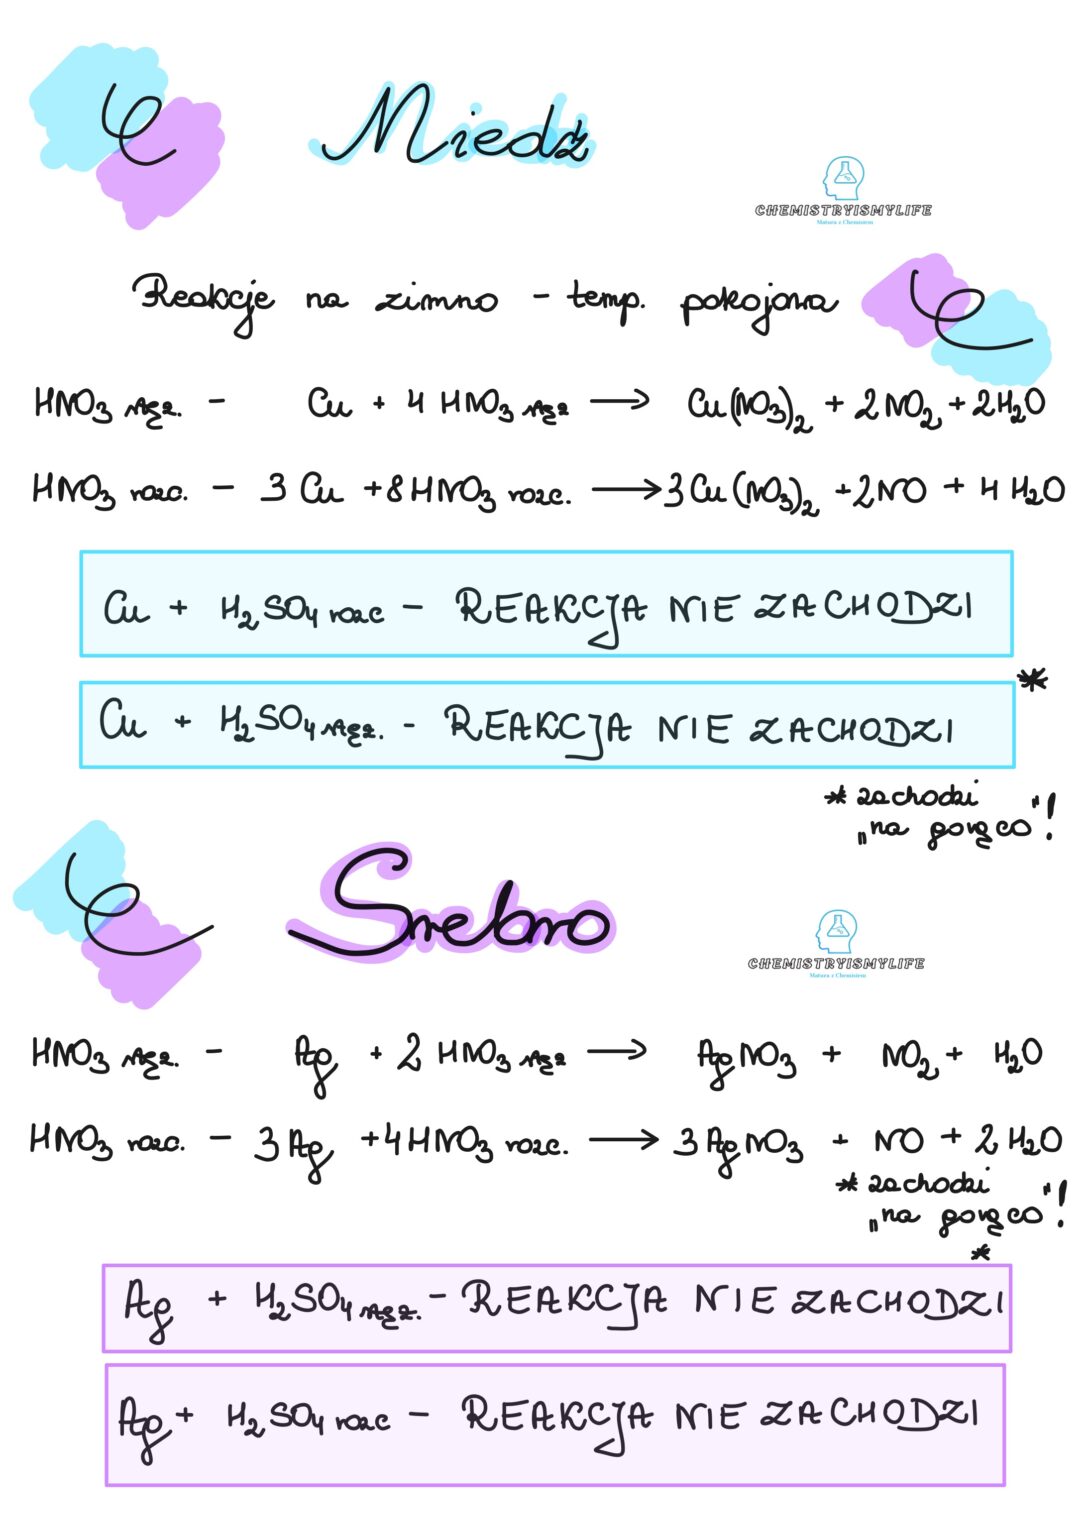 Miedź
CHEMISTRYISMYLIFE
Matura z Chemistem
Reakcje na zimno - temp. pokojowa
HNO3 stęż. - Cu + 4 HNO3 stęż → Cu(NO3)2 + 2NO2 + 2H2O
HNO3 rozc. - 3 Cu + 8HNO3 rozc. → 3Cu(NO3)2 + 2NO + 4 H2O
Cu + H2SO4 rozc - REAKCJA NIE ZACHODZI
*
Cu + H2SO4 stęż. - REAKCJA NIE ZACHODZI
* zachodzi
„na gorąco"!
Srebro
CHEMISTRYISMYLIFE
Matura z Chemistem
HNO3 stęż. - Ag + 2 HNO3 stęż → AgNO3 + NO2 + H2O
HNO3 rozc. - 3 Ag + 4HNO3 rozc. → 3 AgNO3 + NO + 2 H2O
* zachodzi
„na gorąco"!
*
Ag + H2SO4 stęż. - REAKCJA NIE ZACHODZI
Ag + H2SO4 rozc - REAKCJA NIE ZACHODZI